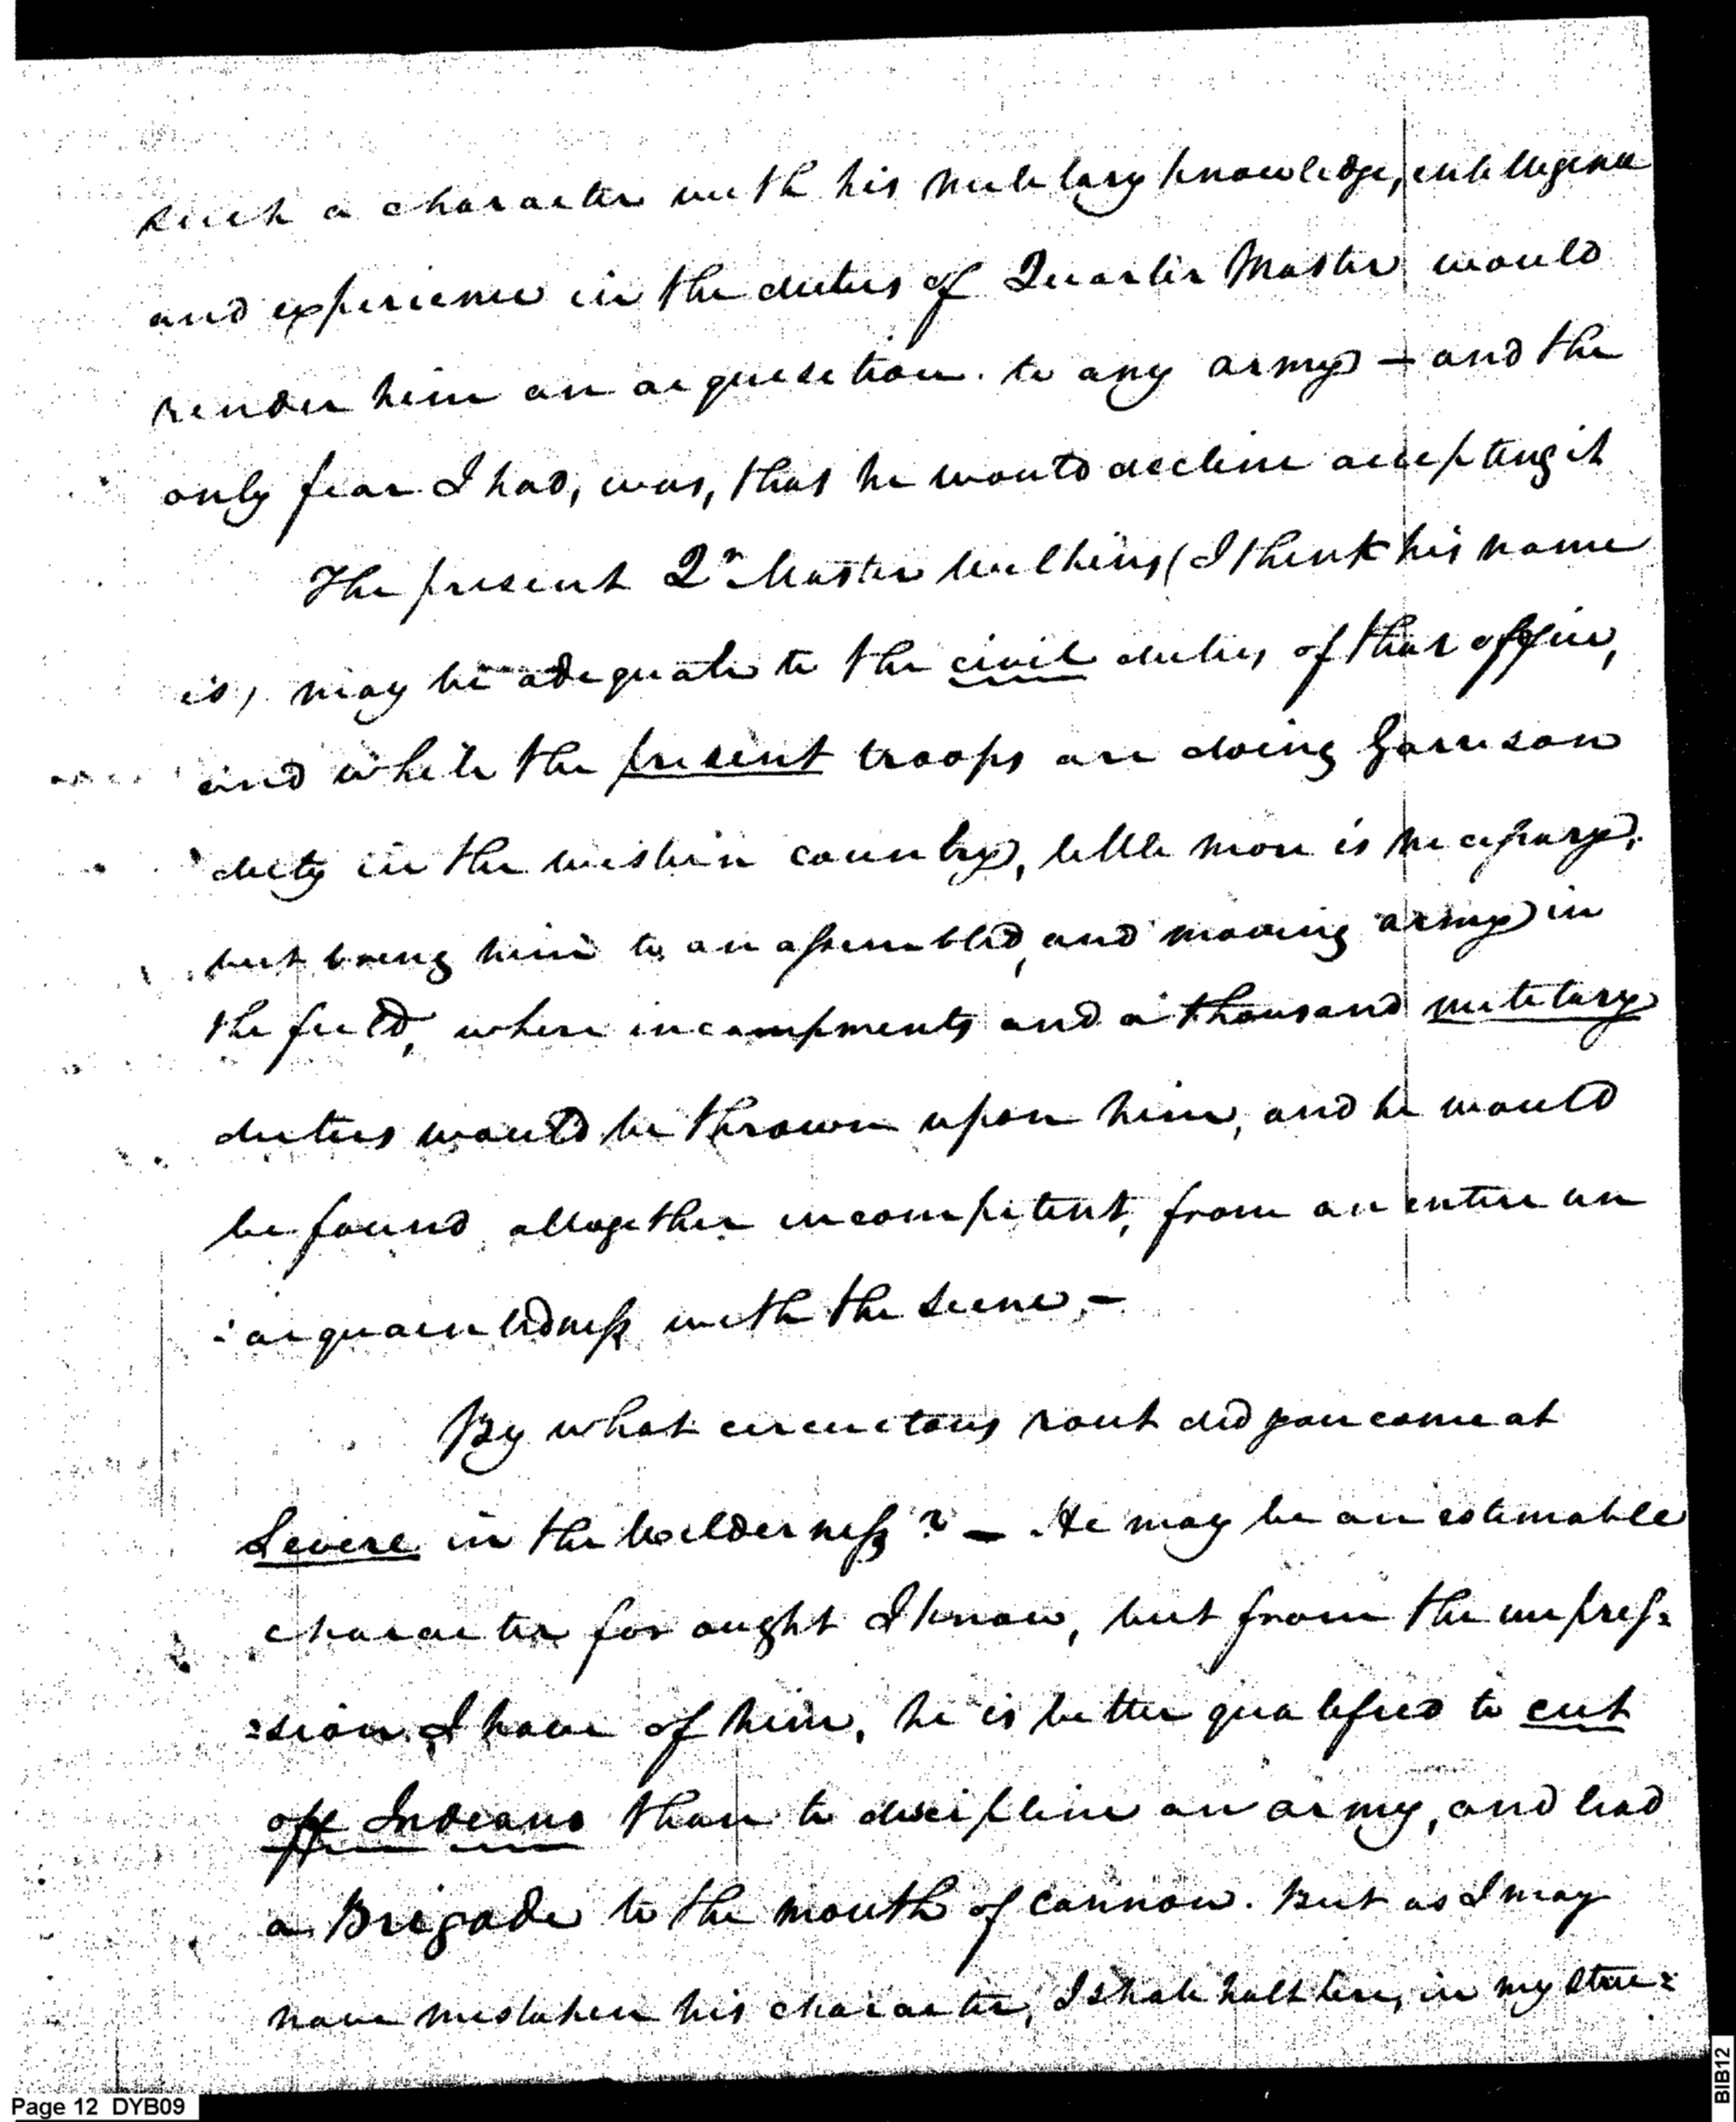 such a character with his military knowledge, intelligence
and experience in the duties of Quarter Master would
render him an acquisition to any army — and the
only fear I had, was, that he would decline accepting it
The present Qr. Master Wilkins (I think his name
is) may be adequate to the civil duties of that office,
and while the present troops are doing Garrison
duty in the western country, little more is necessary.
but bring him to an assembled, and moving army in
the field, where incampments and a thousand military
duties would be thrown upon him, and he would
be found altogether incompetent, from an entire un
:acquaintedness with the scene. —
By what circuitous rout did you come at
Severe in the Wilderness? — He may be an estimable
character for ought I know, but from the impres:
:sion I have of him, he is better qualified to cut
off Indians than to discipline an army, and lead
a Brigade to the mouth of cannon. But as I may
have mistaken his character, I shall halt here, in my stric:
Page 12 DYB09
BIB12